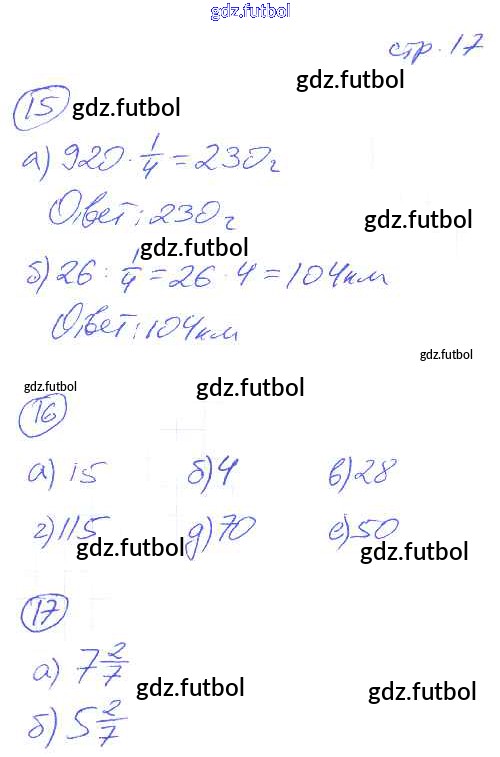 gdz.futbol
стр. 17
15 gdz.futbol
а) 920 · 1/4 = 230 г
Ответ: 230 г gdz.futbol
gdz.futbol
б) 26 : 1/4 = 26 · 4 = 104 км
Ответ: 104 км
gdz.futbol
gdz.futbol gdz.futbol
16
а) 15 б) 4 в) 28
г) 115 д) 70 е) 50
gdz.futbol gdz.futbol
17
а) 7 2/7
gdz.futbol gdz.futbol
б) 5 2/7